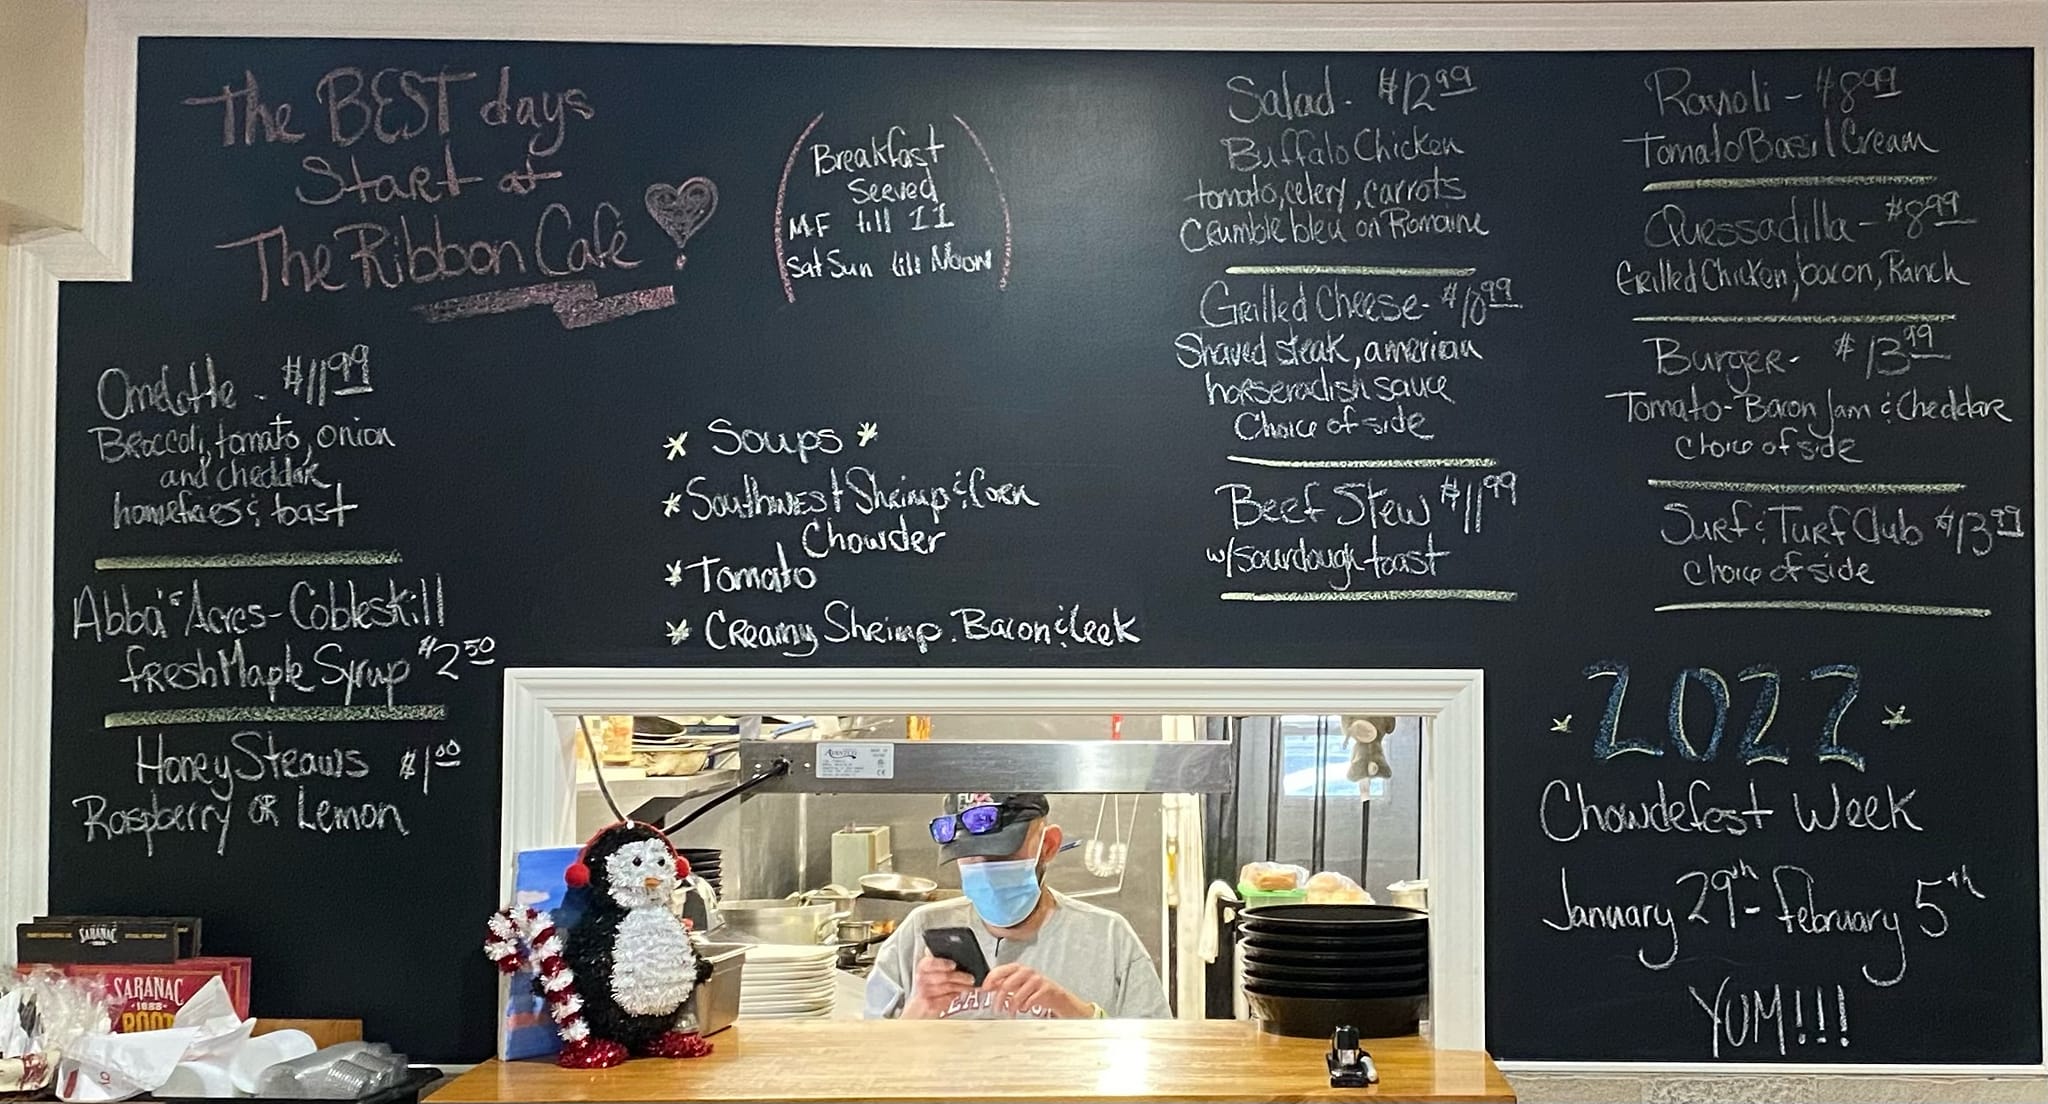 The BEST days
Start at
The Ribbon Café
Breakfast
Served
M-F till 11
Sat Sun till Noon
Omelotte - $11.99
Broccoli, tomato, onion
and cheddar
homefries & toast
Abba's Acres - Cobleskill
fresh Maple Syrup $2.50
Honey Straws $1.00
Raspberry or Lemon
* Soups *
* Southwest Shrimp & Corn
Chowder
* Tomato
* Creamy Shrimp. Bacon & Leek
Salad - $12.99
Buffalo Chicken
tomato, celery, carrots
Crumble bleu on Romaine
Grilled Cheese - $10.99
Shaved steak, american
horseradish sauce
Choice of side
Beef Stew $11.99
w/sourdough toast
Ravioli - $8.99
Tomato Basil Cream
Quessadilla - $8.99
Grilled Chicken, bacon, Ranch
Burger - $13.99
Tomato-Bacon Jam & Cheddar
choice of side
Surf & Turf Club $13.99
choice of side
* 2022 *
Chowdefest Week
January 29th - February 5th
YUM!!!
SARANAC
SARANAC
1888
ROOT